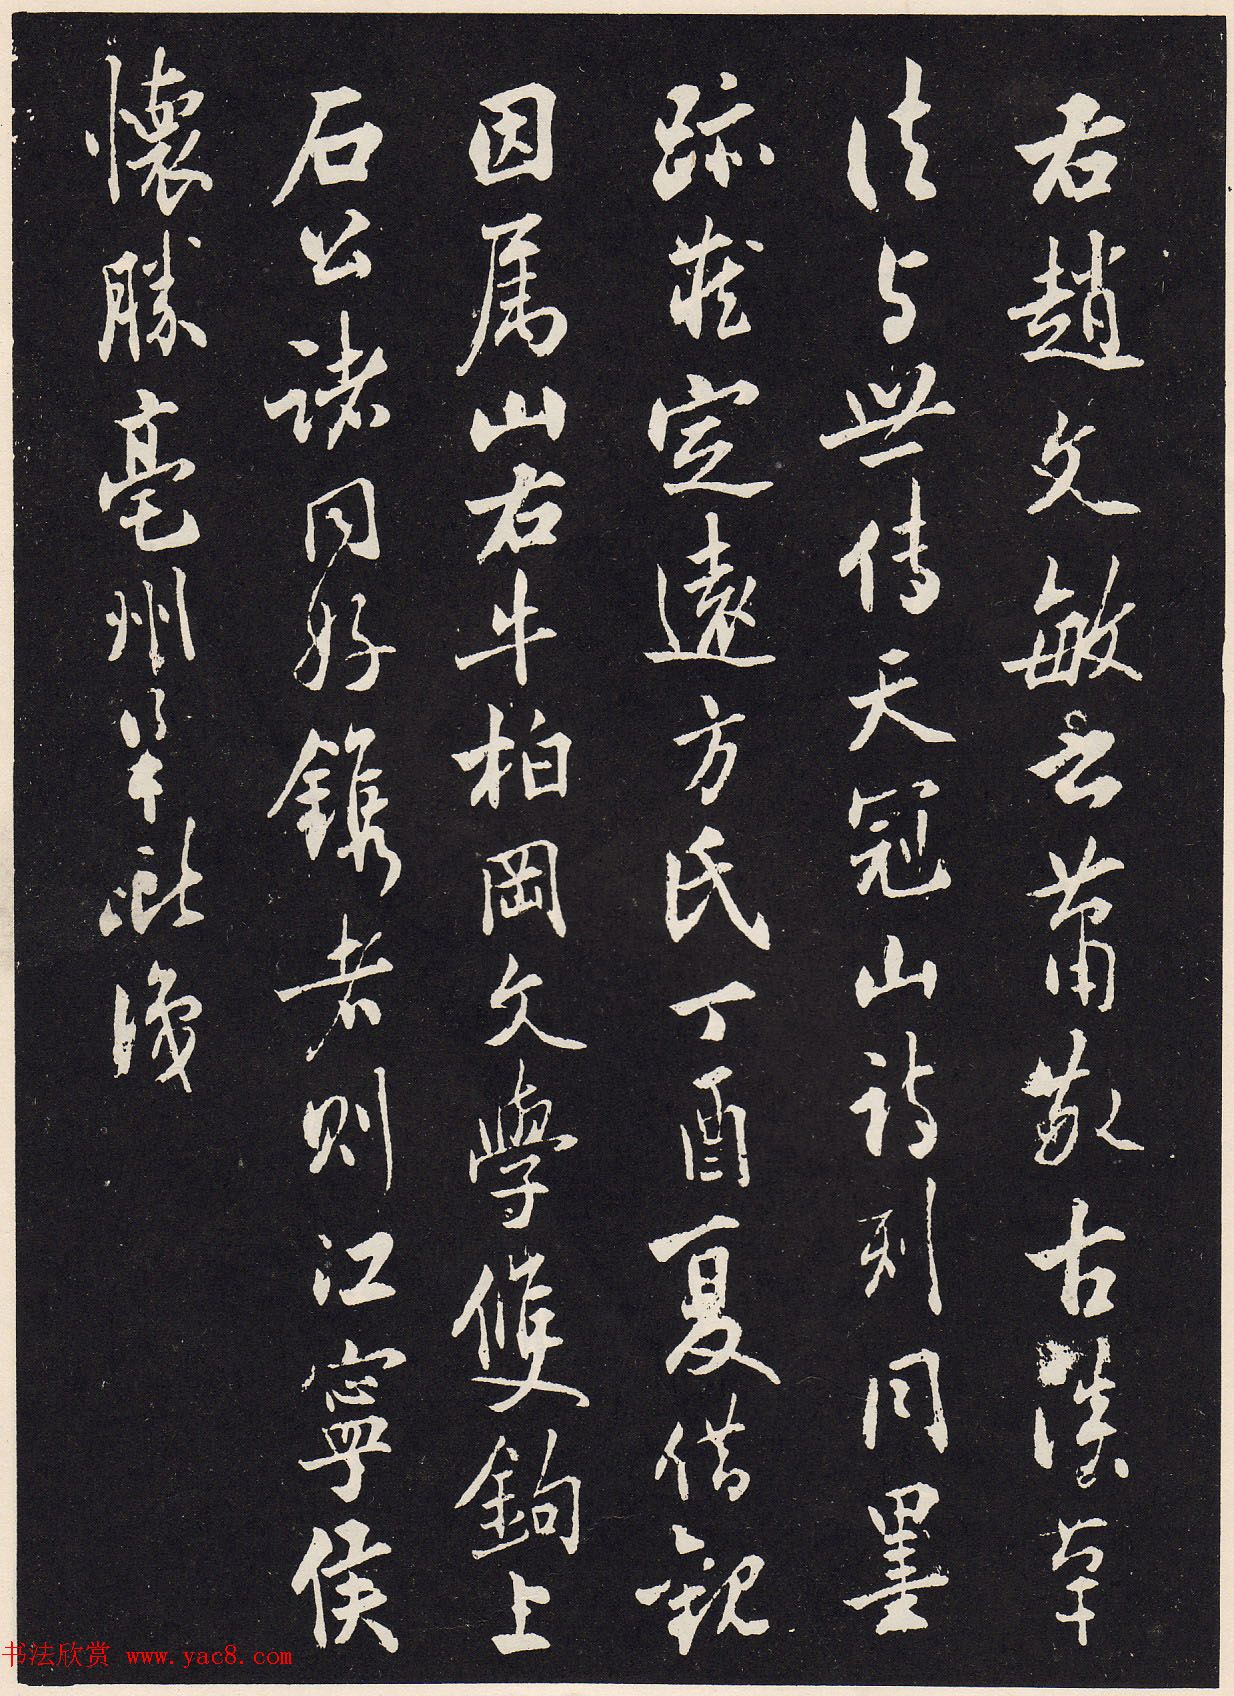 右趙文敏公蕭散古淡草
法与世傳天冠山詩刻同墨
跡藏定遠方氏丁酉夏借觀
因属山右牛柏岡文學雙鉤上
石公諸同好鐫者則江寧侯
懷勝亳州梁巘識
书法欣赏 www.yac8.com